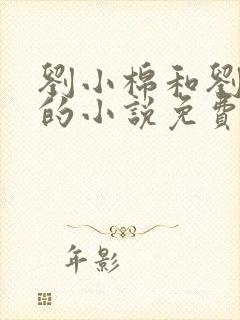 劉小棉和劉
的小說免費
年影